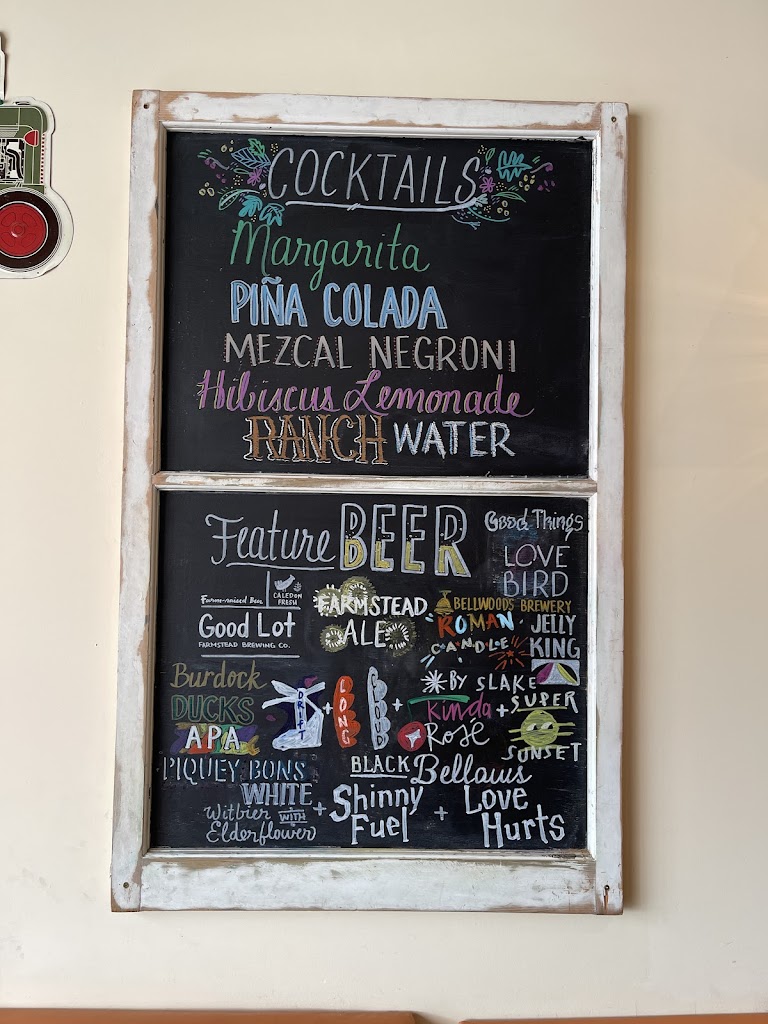 COCKTAILS
Margarita
PIÑA COLADA
MEZCAL NEGRONI
Hibiscus Lemonade
RANCH WATER
Feature BEER
Good Things
LOVE
BIRD
Farm-raised Beer
CALEDON
FRESH
Good Lot
FARMSTEAD BREWING CO.
FARMSTEAD
ALE
BELLWOODS BREWERY
ROMAN
CANDLE
JELLY
KING
Burdock
DUCKS
APA
DRIFT
+
LONG
CLOUD
+
BY SLAKE
Kinda
Rosé
+
SUPER
SUNSET
PIQUEY BONS
WHITE
Witbier WITH
Elderflower
+
BLACK Bellows
Shinny
Fuel
+
Love
Hurts